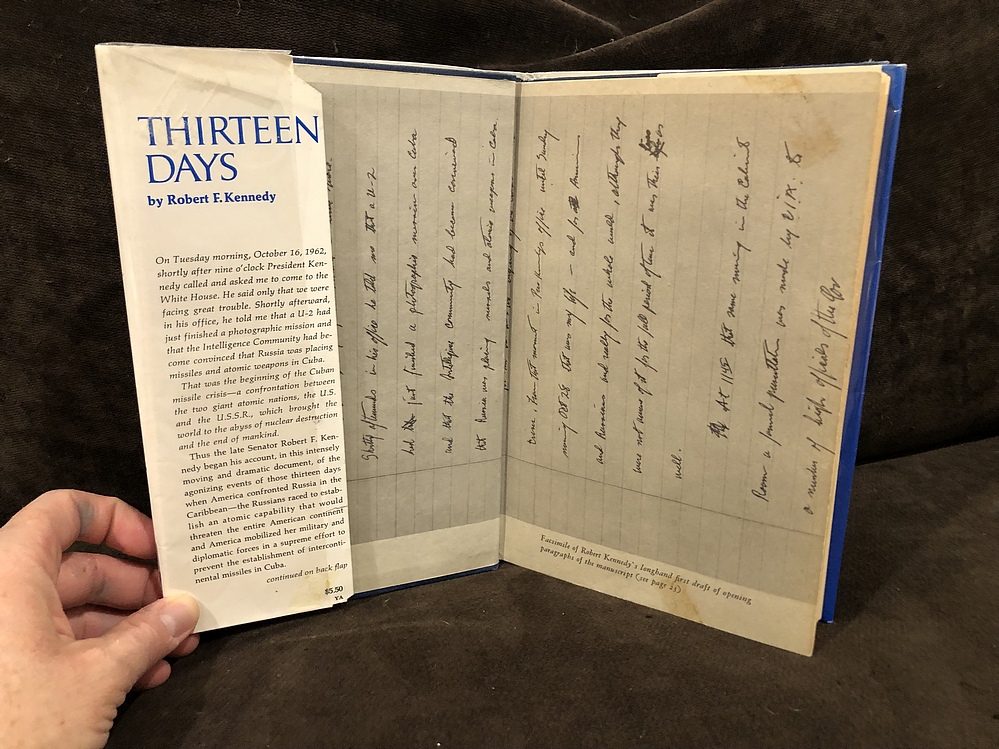 THIRTEEN
DAYS
by Robert F. Kennedy
On Tuesday morning, October 16, 1962,
shortly after nine o'clock President Ken-
nedy called and asked me to come to the
White House. He said only that we were
facing great trouble. Shortly afterward,
in his office, he told me that a U-2 had
just finished a photographic mission and
that the Intelligence Community had be-
come convinced that Russia was placing
missiles and atomic weapons in Cuba.
That was the beginning of the Cuban
missile crisis—a confrontation between
the two giant atomic nations, the U.S.
and the U.S.S.R., which brought the
world to the abyss of nuclear destruction
and the end of mankind.
Thus the late Senator Robert F. Ken-
nedy began his account, in this intensely
moving and dramatic document, of the
agonizing events of those thirteen days
when America confronted Russia in the
Caribbean—the Russians raced to estab-
lish an atomic capability that would
threaten the entire American continent
and America mobilized her military and
diplomatic forces in a supreme effort to
prevent the establishment of interconti-
nental missiles in Cuba.
continued on back flap
$5.50
YA
in his office he told me that a U-2
had just finished a photographic mission over Cuba
and that the Intelligence community had become convinced
that Russia was placing missiles and atomic weapons in Cuba.
that was my life - and for Americans
and Russians and really for the whole world, although they
were not aware of it for the full period of time it was their
well.
At 1145 that same morning in the Cabinet
Room a formal presentation was made by C.I.A. to
a number of high officials of the Gov
Facsimile of Robert Kennedy's longhand first draft of opening
paragraphs of the manuscript (see page 23)